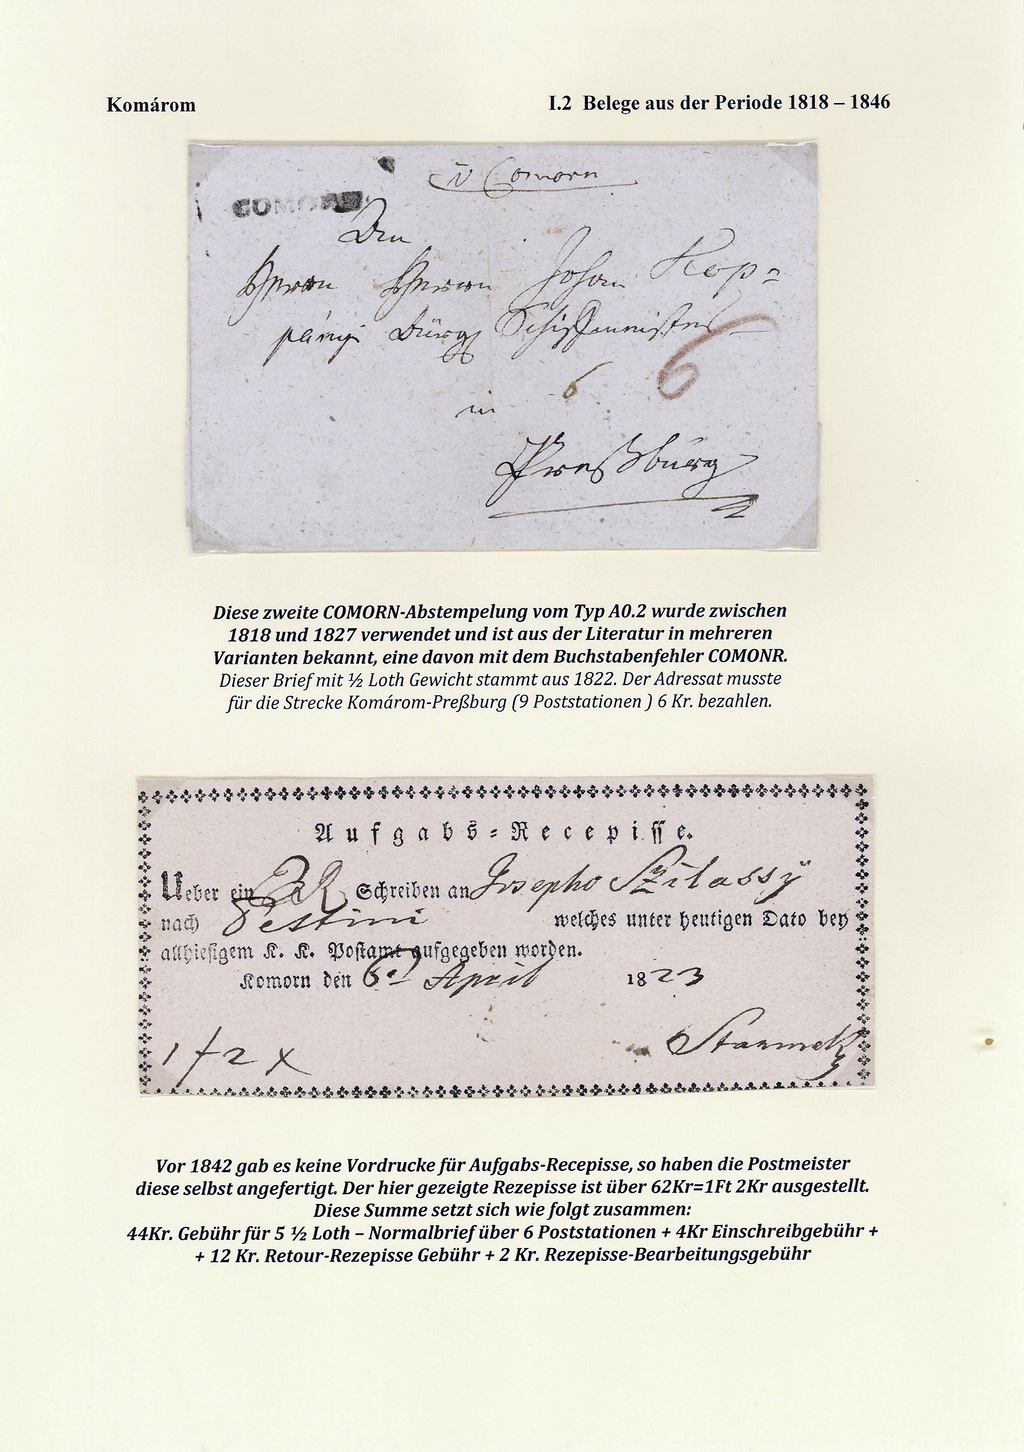 Komárom
I.2 Belege aus der Periode 1818 – 1846
v Comorn
COMORN
Den
Herrn Herrn Johan Kop=
pányi Bürg Schifmeister
6 6
in
Preßburg
Diese zweite COMORN-Abstempelung vom Typ A0.2 wurde zwischen
1818 und 1827 verwendet und ist aus der Literatur in mehreren
Varianten bekannt, eine davon mit dem Buchstabenfehler COMONR.
Dieser Brief mit ½ Loth Gewicht stammt aus 1822. Der Adressat musste
für die Strecke Komárom-Preßburg (9 Poststationen ) 6 Kr. bezahlen.
Aufgabs=Recepisse.
Ueber ein RR Schreiben an Josepho Szilassÿ
nach Pestini welches unter heutigen Dato bey
allhiesigem K. K. Postamt aufgegeben worden.
Komorn den 6d April 1823
1 f 2 x
Vor 1842 gab es keine Vordrucke für Aufgabs-Recepisse, so haben die Postmeister
diese selbst angefertigt. Der hier gezeigte Rezepisse ist über 62Kr=1Ft 2Kr ausgestellt.
Diese Summe setzt sich wie folgt zusammen:
44Kr. Gebühr für 5 ½ Loth – Normalbrief über 6 Poststationen + 4Kr Einschreibgebühr +
+ 12 Kr. Retour-Rezepisse Gebühr + 2 Kr. Rezepisse-Bearbeitungsgebühr